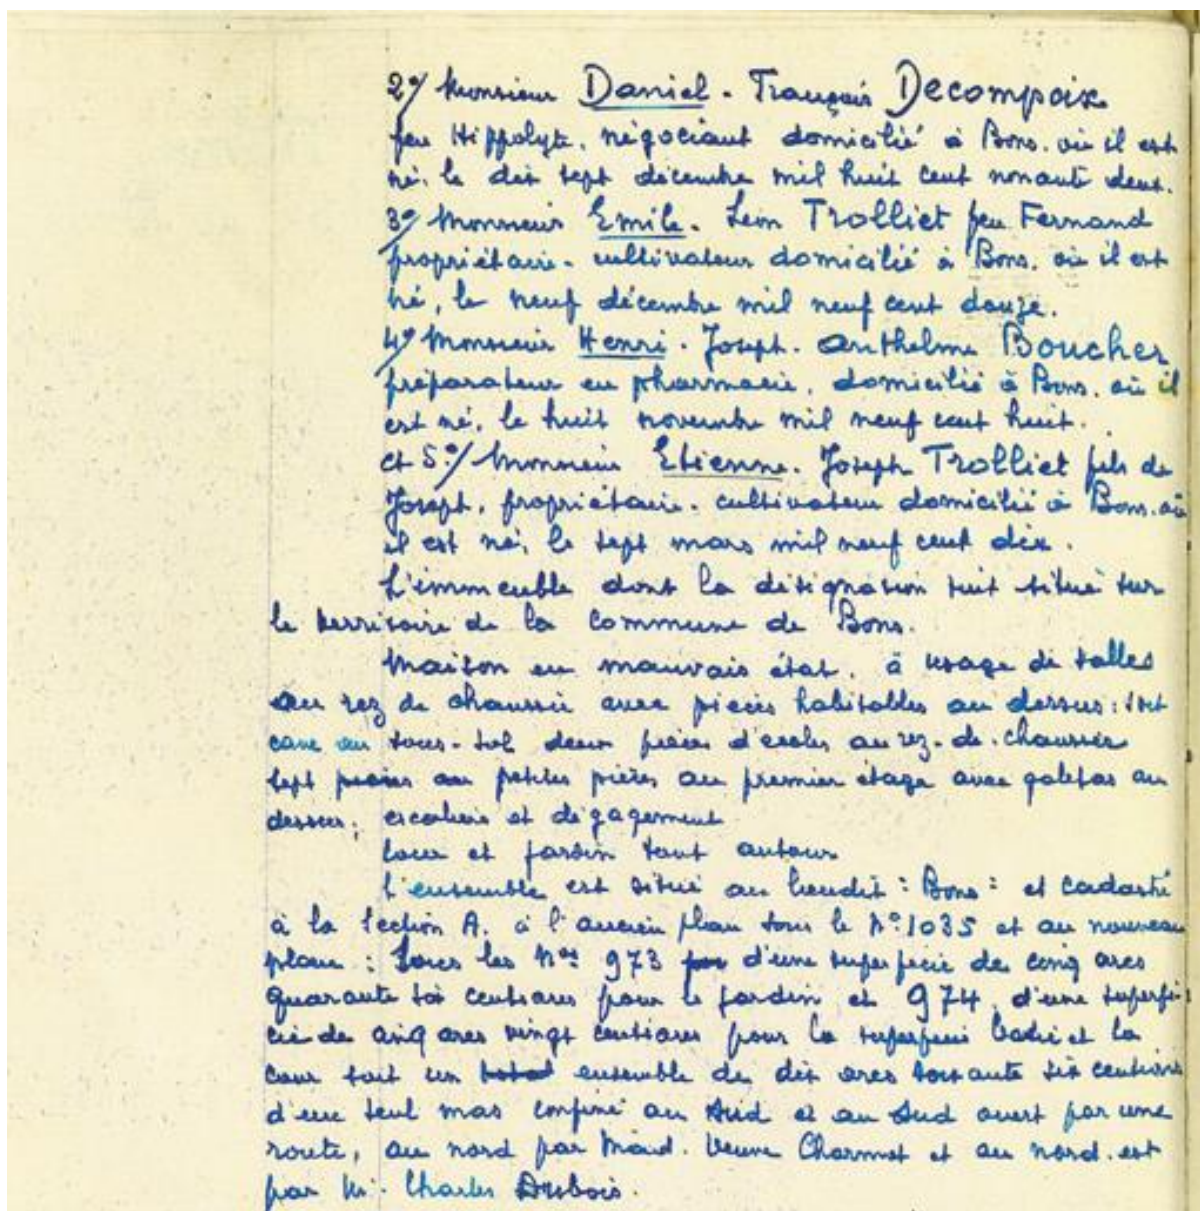 2°/ Monsieur Daniel - François Decompoix
feu Hippolyte, négociant domicilié à Bons, où il est
né, le dix sept décembre mil huit cent nonante deux.
3°/ Monsieur Emile - Léon Trolliet feu Fernand
propriétaire - cultivateur domicilié à Bons, où il est
né, le neuf décembre mil neuf cent douze.
4°/ Monsieur Henri - Joseph - Anthelme Boucher
préparateur en pharmacie, domicilié à Bons, où il
est né, le huit novembre mil neuf cent huit.
et 5°/ Monsieur Etienne - Joseph Trolliet fils de
Joseph, propriétaire - cultivateur domicilié à Bons, où
il est né, le sept mars mil neuf cent dix.
L'immeuble dont la désignation suit situé sur
le territoire de la commune de Bons.
Maison en mauvais état, à usage de salles
au rez de chaussée avec pièces habitables au dessus : soit
cave au sous-sol deux pièces d'écoles au rez-de-chaussée
sept pièces ou petites pièces au premier étage avec galetas au
dessus, escaliers et dégagement
Cour et jardin tout autour
L'ensemble est situé au lieudit : Bons : et cadastré
à la section A, à l'ancien plan sous le N° 1035 et au nouveau
plan : sous les Nos 973 d'une superficie de cinq ares
quarante six centiares pour le jardin et 974, d'une superfi-
cie de cinq ares vingt centiares pour la superficie batie et la
cour soit un total ensemble de dix ares soixante six centiares
d'un seul mas confiné au sud et au sud ouest par une
route, au nord par Mad. Veuve Charmet et au nord-est
par Mr. Charles Dubois.